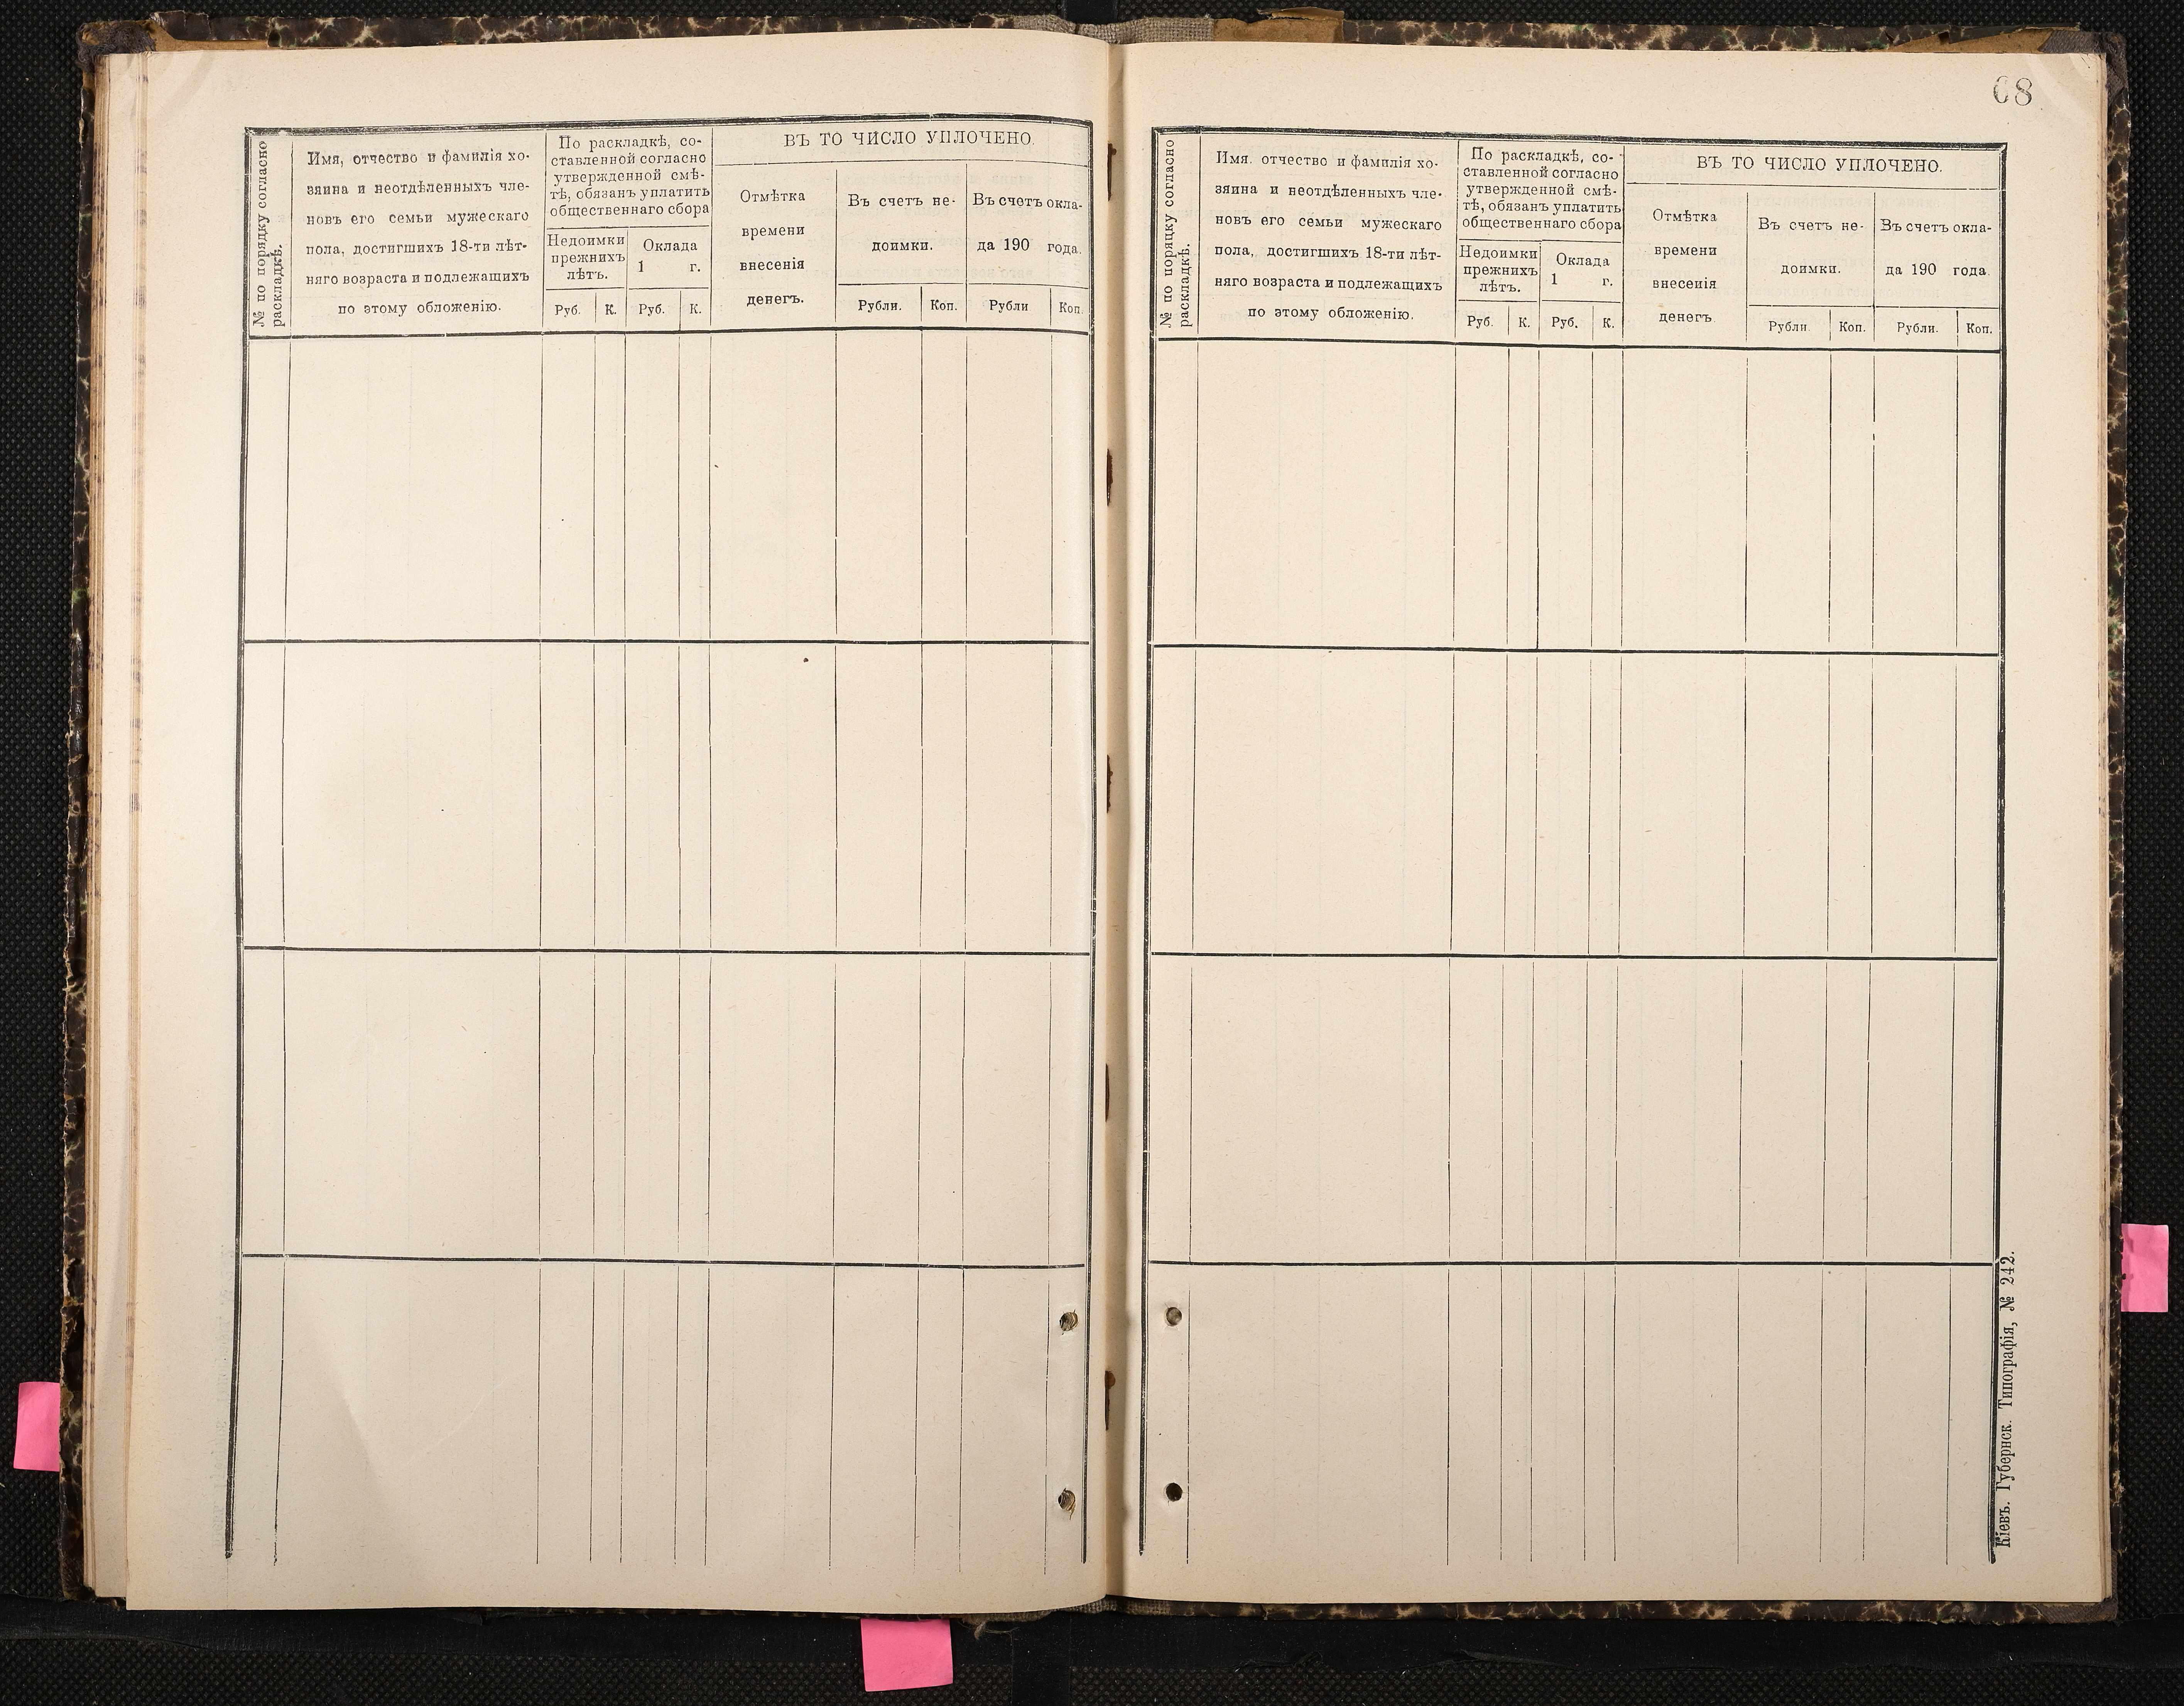 № по порядку согласно
раскладкѣ.
Имя, отчество и фамилія хо-
зяина и неотдѣленныхъ чле-
новъ его семьи мужескаго
пола, достигшихъ 18-ти лѣт-
няго возраста и подлежащихъ
по этому обложенію.
По раскладкѣ, со-
ставленной согласно
утвержденной смѣ-
тѣ, обязанъ уплатить
общественнаго сбора
Недоимки
прежнихъ
лѣтъ.
Оклада
1 г.
Руб. К. Руб. К.
ВЪ ТО ЧИСЛО УПЛОЧЕНО.
Отмѣтка
времени
внесенія
денегъ.
Въ счетъ не-
доимки.
Въ счетъ окла-
да 190 года.
Рубли. Коп. Рубли Коп.
68
№ по порядку согласно
раскладкѣ.
Имя. отчество и фамилія хо-
зяина и неотдѣленныхъ чле-
новъ его семьи мужескаго
пола, достигшихъ 18-ти лѣт-
няго возраста и подлежащихъ
по этому обложенію.
По раскладкѣ, со-
ставленной согласно
утвержденной смѣ-
тѣ, обязанъ уплатить
общественнаго сбора
Недоимки
прежнихъ
лѣтъ.
Оклада
1 г.
Руб. К. Руб. К.
ВЪ ТО ЧИСЛО УПЛОЧЕНО.
Отмѣтка
времени
внесенія
денегъ.
Въ счетъ не-
доимки.
Въ счетъ окла-
да 190 года.
Рубли Коп. Рубли. Коп.
Кіевъ. Губернск. Типографія, № 242.